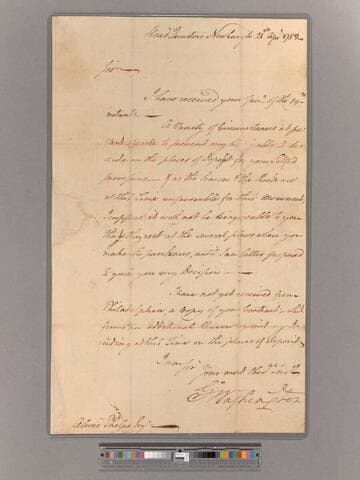 Head Quarters Newburgh 21st Apr 1782
Sir
I have received your favr of the 19th
instant
A Variety of Circumstances at pre
sent operate to prevent my be
on the places of Deposit for your Salted
provisions — as the Season & the Roads are
at this Time unfavorable for their Movement,
I suppose it will not be disagreeable to you
that they rest at the several places where you
make the purchases, untill I am better prepared
to give you my Decision —
I have not yet received from
Philadelphia a Copy of your Contract, which
forms an additional Reason against my De
ciding at this Time on the places of Deposit
I am Sir
Your most Obedt Servt
Go Washington
Oliver Phelps Esq